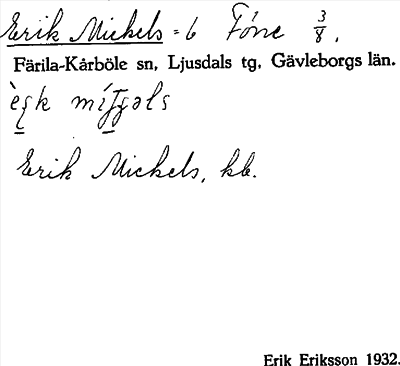 Erik Mickels = 6 Föne 3/8.
Färila-Kårböle sn, Ljusdals tg, Gävleborgs län.
Erik Mickels, kb.
Erik Eriksson 1932.